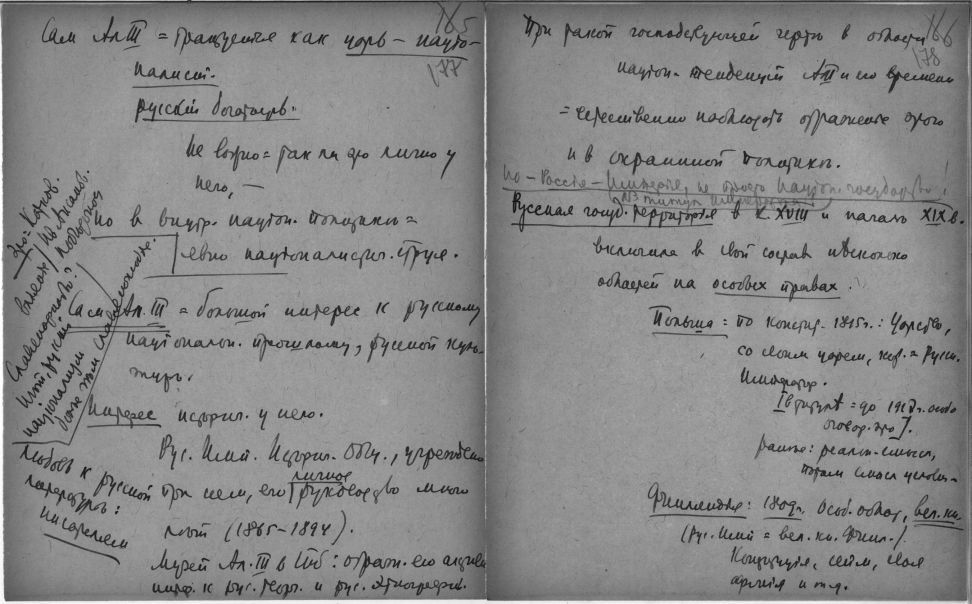 165
177
Сам Ал III = трактуется как царь – нацио-
налист.
русский богатырь.
Не важно = так ли это лично у
него, —
но в внутр. национ. политике =
явно националистич. струя.
Сам Ал. III = большой интерес к русскому
национальн. прошлому, русской куль-
туре.
Интерес историч. у него.
Рус. Имп. Историч. Общ., учреждено
при нем, его личное руководство много
лет (1865–1894).
Музей Ал. III в СПб: отраж. его
интер. к рус. и рус. этнографии.
Это = Катков.
Славянофильство?
национализм
Любовь к русской
литературе:
писателем
166
178
При такой господствующей черте в области
национ. тенденций Ал III и его времени
= естественно наблюдать отражение этого
и в окраинной политике.
но – Россия – Империя, не просто национ. государство!
Русская госуд. территория в к. XVIII и начале XIX в.
включила в свой состав несколько
областей на особых правах.
Польша = по констит. 1815 г.: Царство,
со своим царем, кот. = Русск.
Император.
[В титуле = до 1917 г. особо
оговор. это].
ранее: реальн. смысл,
потом смысл условн.
Финляндия: 1809 г. особ. област, вел. кн.
(Рус. Имп = вел. кн. Финл.)
Конституция, сейм, своя
армия и т.д.